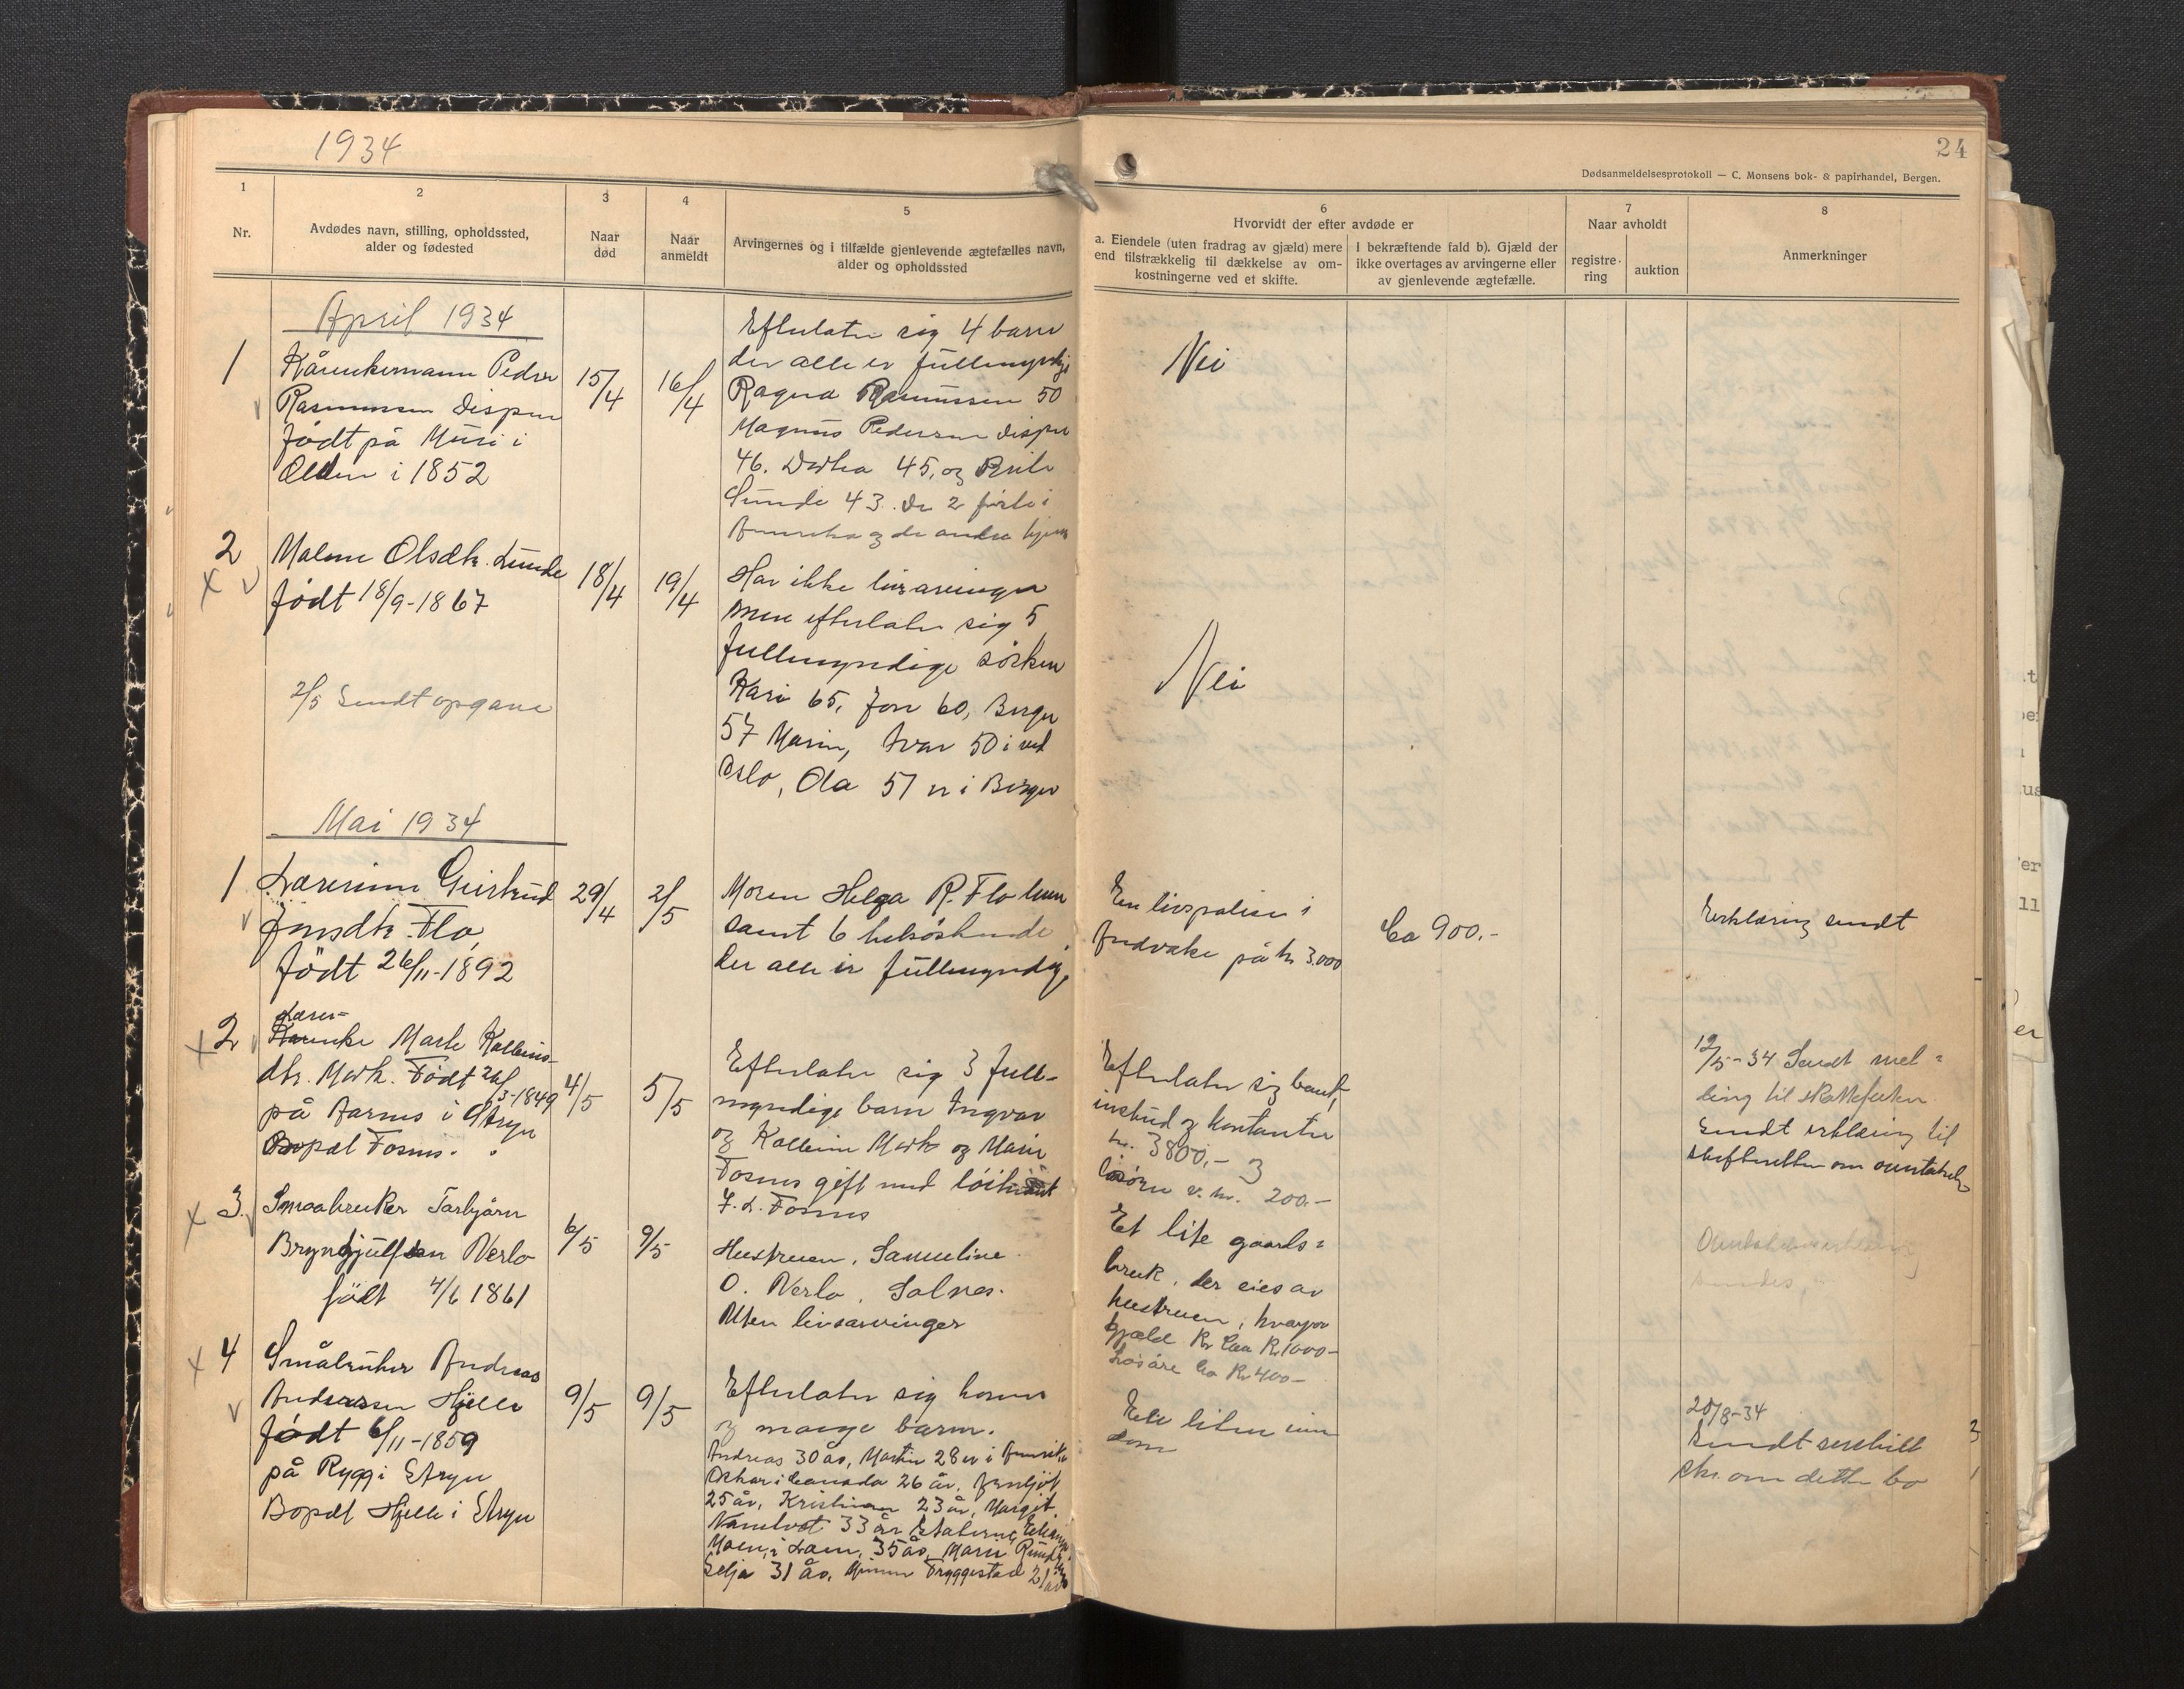 1934
24
Dødsanmeldelsesprotokoll — C. Monsens bok- & papirhandel, Bergen.
1
Nr.
2
Avdødes navn, stilling, opholdssted,
alder og fødested
3
Naar
død
4
Naar
anmeldt
5
Arvingernes og i tilfælde gjenlevende ægtefælles navn,
alder og opholdssted
6
Hvorvidt der efter avdøde er
a. Eiendele (uten fradrag av gjæld) mere
end tilstrækkelig til dækkelse av om-
kostningerne ved et skifte.
I bekræftende fald b). Gjæld der
ikke overtages av arvingerne eller
av gjenlevende ægtefælle.
7
Naar avholdt
registre-
ring
auktion
8
Anmerkninger
April 1934
1
Kårenkemann Peder
Rasmussen Dispen
født på Muri i
Olden i 1852
15/4
16/4
Efterlater sig 4 barn
der alle er fullmyndige
Ragna Rasmussen 50
Magnus Pedersen Dispen
46. 45, og
Sunde 43. De 2 første i
Amerika og de andre hjemme
Nei
2
Malene Olsdtr. Sunde
født 18/9-1867
2/5 Sendt opgave
18/4
19/4
Har ikke livsarvinger
men efterlater sig 5
fullmyndige sösken
Kari 65, Jon 60, Berge
57 Marin, Ivar 50 i ved
Oslo, Ola 57 er i Bergen
Nei
Mai 1934
1
Lærerinne Guirtrud
Jonsdtr. Flo
født 26/11-1892
29/4
2/5
Moren Helga R. Flo
samt 6 helsöskende
der alle er fullmyndige
En livspolise i
Andvake på kr 3.000
Ca 900.-
Erklæring sendt
2
Lærer-
enke Marte Kolbeins-
dtr. Mork. Født 26/3-1849
på Aarnes i Stryn
Bopæl Fosnes.
4/5
5/5
Efterlater sig 3 full-
myndige barn Ingvar
og Kolbein Mork og Marie
Fosnes gift med löitnant
J. L. Fosnes
Efterlater sig bank-
inskud og kontanter
kr. 3800.-
løsøre v. kr. 200.-
12/5-34 Sendt mel=
ding til skattefuten
Sendt erklæring til
skifteretten om overtakelse
3.
Smaabruker Torbjørn
Brynjulfsen Nerlo
født 4/6 1861
6/5
9/5
Hustruen, Samueline
O. Nerlo, Solnes.
Uten livsarvinger
Et lite gaards=
bruk, der eies av
hustruen, hvorpaa
gjæld Kr Ca Kr 1000-
Løsöre Ca Kr 400-
4
Småbruker Andreas
Anderssen Hjelle
født 6/11-1859
på Rygg i Stryn
Bopæl Hjelle i Stryn
9/5
9/5
Efterlater sig kone
og mange barn.
Andreas 30 år, Martin 28 er i Amerika
Oskar i Canada 26 år,
25 år, Kristian 23 år, Margit
33 år
35 år, Marie
Selja 31 år, Tryggestad 21 år
En liten eien
dom
20/8-34
Sendt
skr. om dette bo